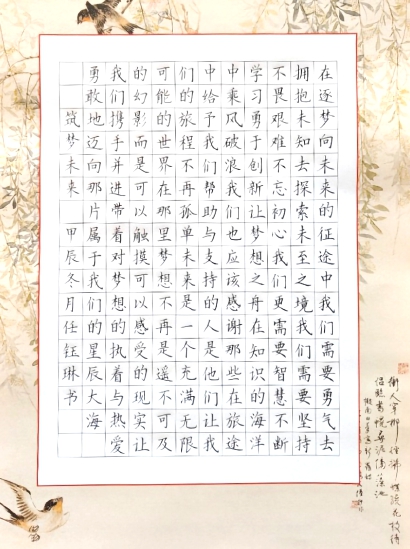 在逐梦向未来的征途中我们需要勇气去
拥抱未知去探索未至之境我们需要坚持
不畏艰难不忘初心我们更需要智慧不断
学习勇于创新让梦想之舟在知识的海洋
中乘风破浪我们也应该感谢那些在旅途
中给予我们帮助与支持的人是他们让我
们的旅程不再孤单未来是一个充满无限
可能的世界在那里梦想不再是遥不可及
的幻影而是可以触摸可以感受的现实让
我们携手并进带着对梦想的执着与热爱
勇敢地迈向那片属于我们的星辰大海
筑梦未来 甲辰冬月任钰琳书